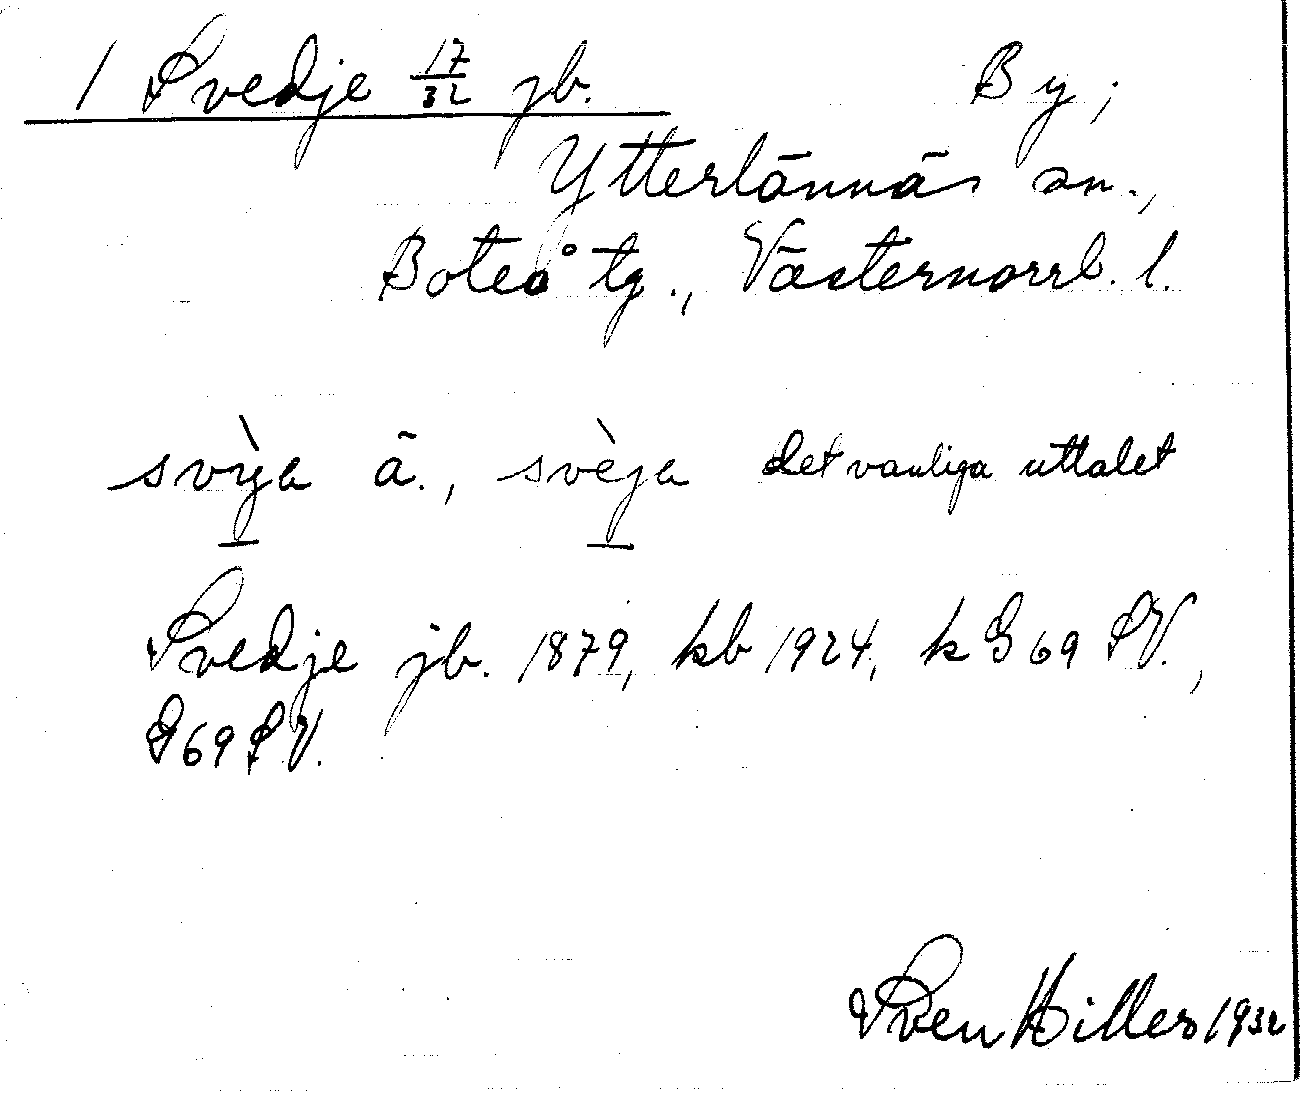 1 Svedje 17/32 jb. By;
Ytterlännäs sn.,
Boteå tg., Västernorrl. l.
svỳja ä., svèja det vanliga uttalet
Svedje jb. 1879, kb 1924, k G 69 SV.,
G 69 SV.
Sven Hiller 1932